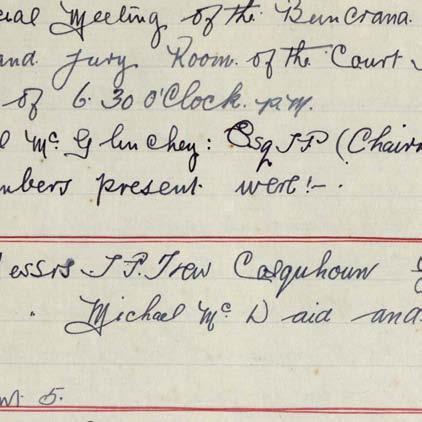 cial Meeting of the Buncrana.
and Jury Room. of the Court
of 6.30 O'Clock. p.m.
Mc. Glinchey: Esq J P (Chairm
mbers present were!- .
essrs J. P. Trew Colquhoun
" Michael Mc Daid and
nt 5.